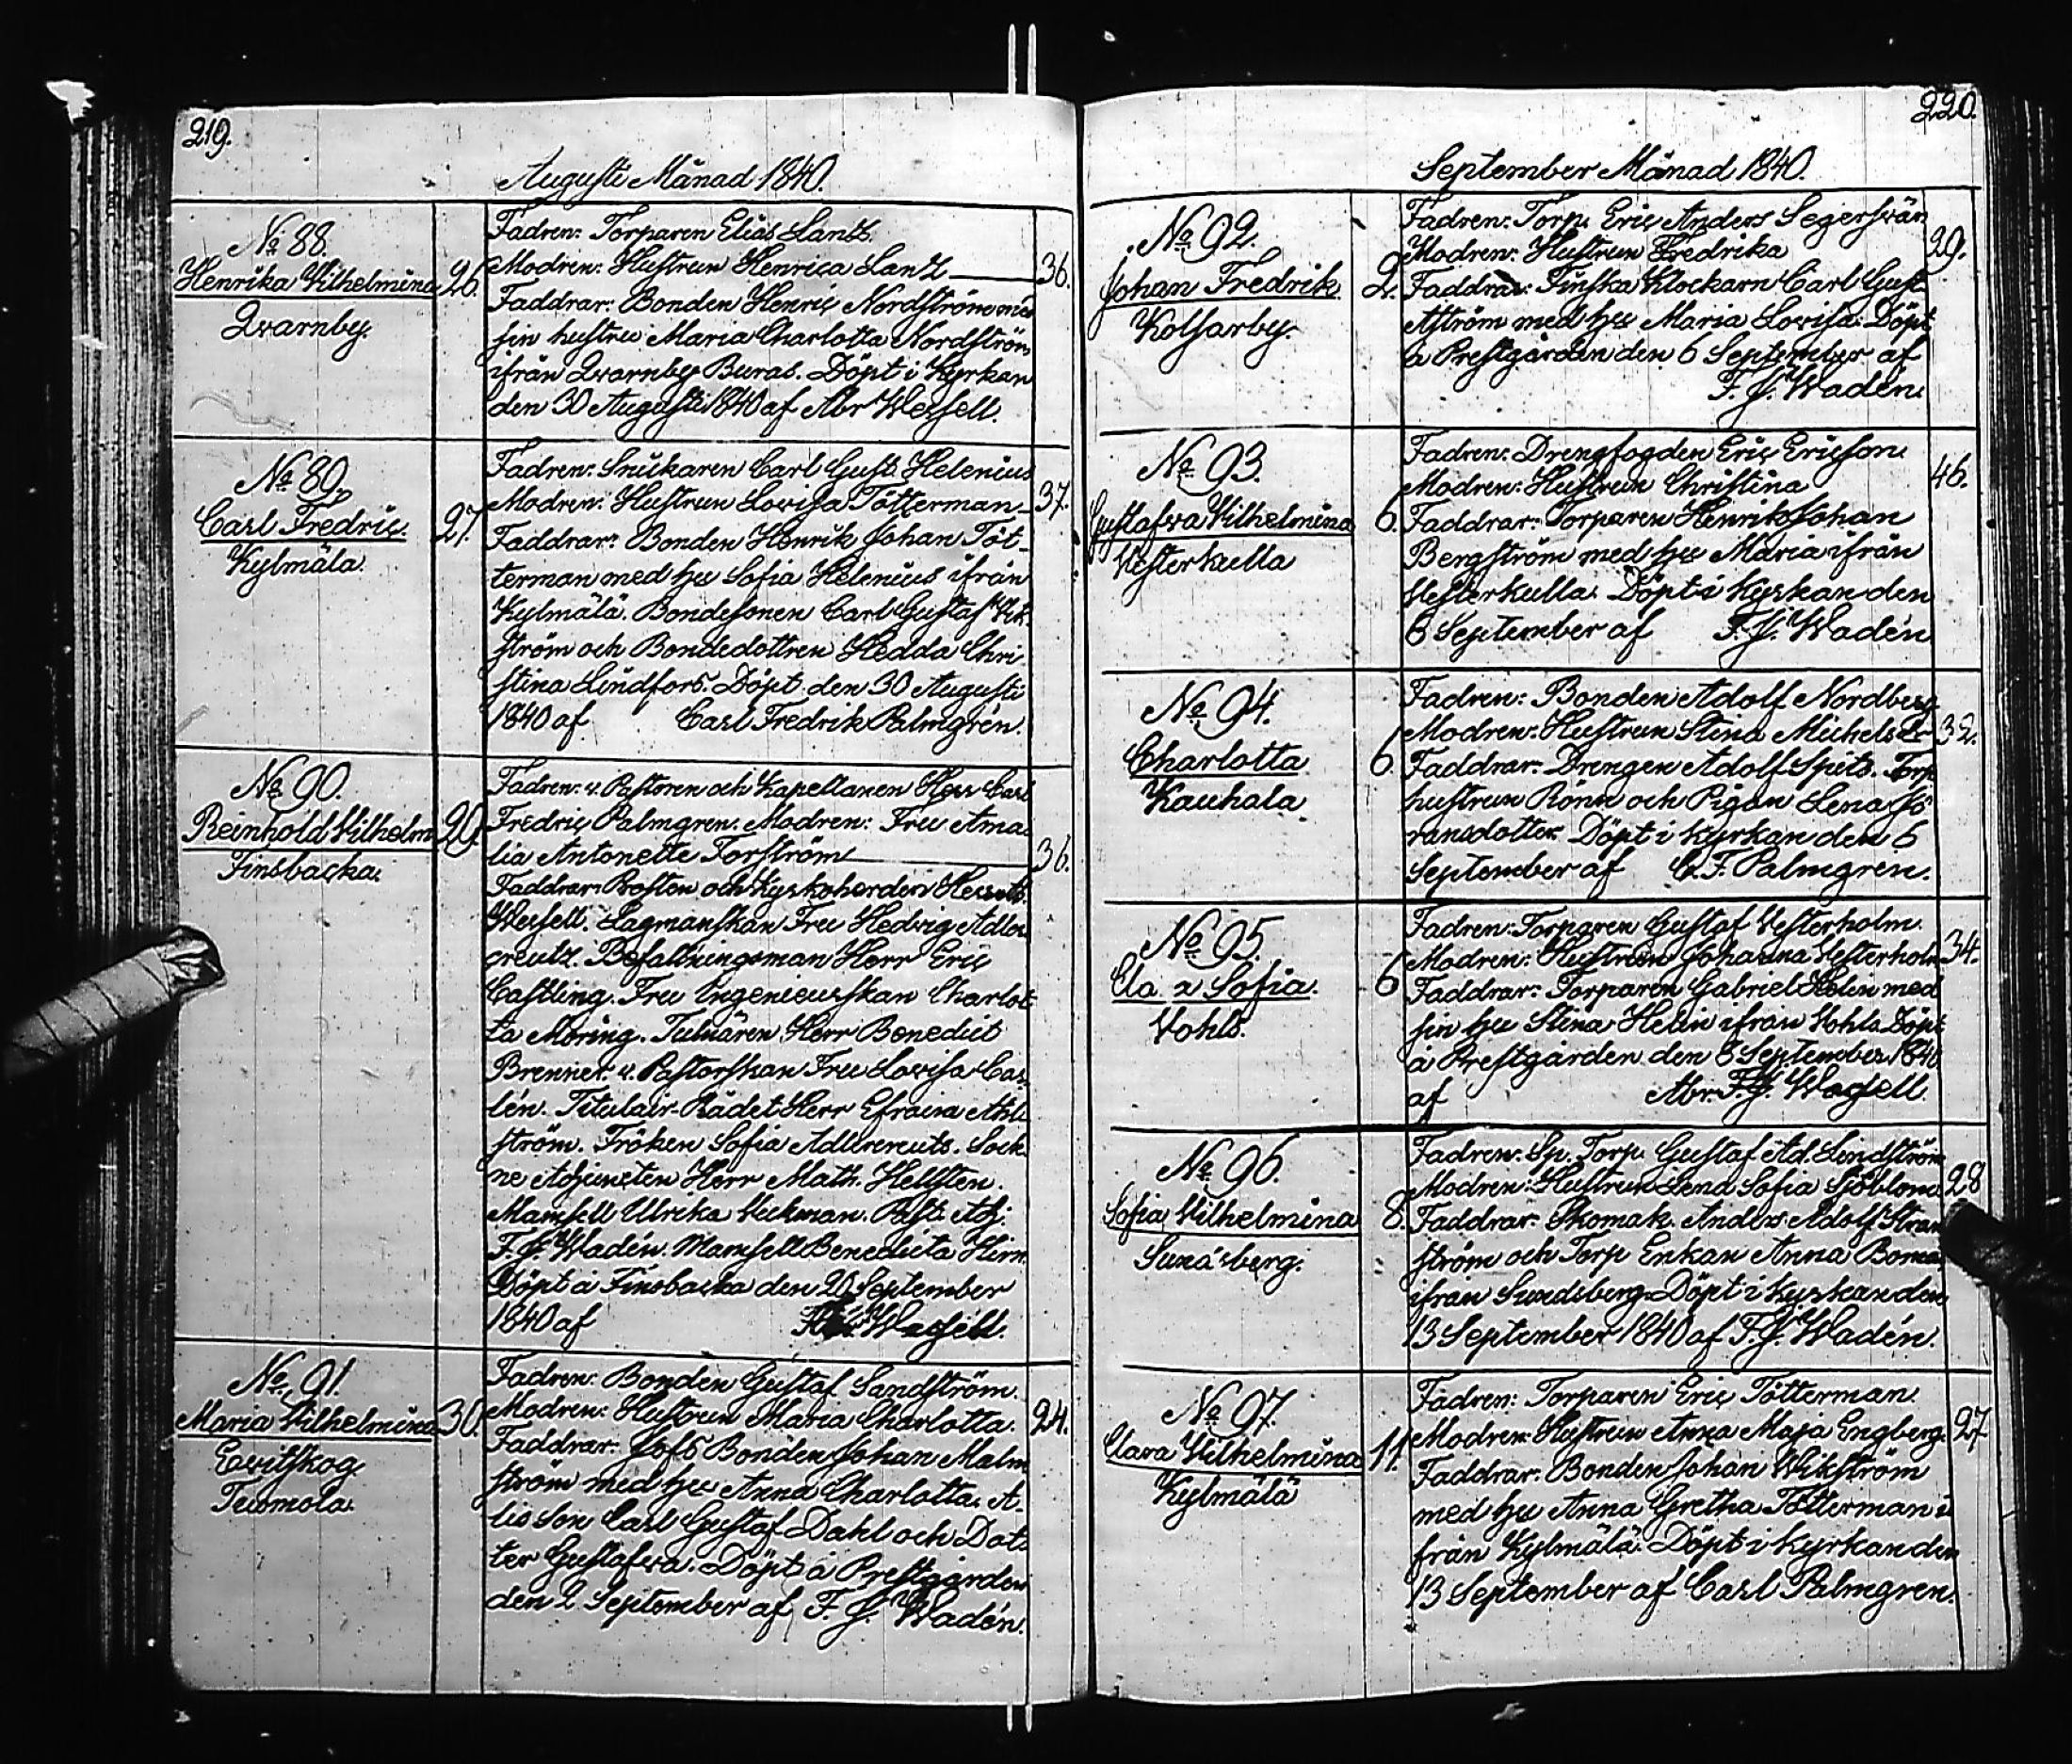 219.
Augusti Månad 1840.
No 88.
Henrika Wilhelmina
Qvarnby.
26.
Fadren: Torparen Elias Lantz.
Modren: Hustrun Henrica Lantz
36.
Faddrar: Bonden Henric Nordström med
sin hustru Maria Charlotta Nordström
ifrån Qvarnby Buras. Döpt i Kyrkan
den 30 Augusti 1840 af Abr Wessell.
No 89.
Carl Fredric.
Kylmäla.
27.
Fadren: Snickaren Carl Gust. Helenius
Modren: Hustrun Lovisa Tötterman
37.
Faddrar: Bonden Henrik Johan Töt-
terman med hu Sofia Helenius ifrån
Kylmälä. Bondesonen Carl Gustaf Wik-
ström och Bondedottren Hedda Chri-
stina Lindfors. Döpt den 30 Augusti
1840 af Carl Fredrik Palmgrén.
No 90.
Reinhold Wilhelm
Finsbacka.
29.
Fadren: v. Pastoren och Kapellanen Herr Carl
Fredric Palmgren. Modren: Fru Ama-
lia Antonette Forström
36.
Faddrar: Prosten och Kyrkoherden Herr
Wessell. Lagmanskan Fru Hedvig Adler-
creutz. Befallningsman Herr Eric
Castling. Fru Ingenieurskan Charlot-
ta Moring. Tulnären Herr Benedict
Brenner. v. Pastorskan Fru Lovisa Cas-
lén. Titulair-Rådet Herr Efraim Ahl-
ström. Fröken Sofia Adlercreutz. Sock-
ne Adjuncten Herr Math. Hellsten.
Mamsell Ulrika Weckman. Past. Adj.
F. J. Wadén. Mamsell Benedicta Hirn.
Döpt å Finsbacka den 20 September
1840 af Wessell.
No 91.
Maria Wilhelmina
Evitskog
Teromola.
30.
Fadren: Bonden Gustaf Sandström.
Modren: Hustrun Maria Charlotta.
24.
Faddrar: Jofs Bonden Johan Malm-
ström med hu Anna Charlotta, A-
lis son Carl Gustaf Dahl och Dot-
ter Gustafva. Döpt å Prestgården
den 2 September af F. J. Wadén.
220.
September Månad 1840.
No 92.
Johan Fredrik
Kolsarby.
2.
Fadren: Torp. Eric Anders Segersvän
Modren: Hustrun Fredrika
29.
Faddrar: Finska Klockarn Carl Gust.
Åström med hu Maria Lovisa. Döpt
å Prestgården den 6 September af
F. J. Wadén.
No 93.
Gustafva Wilhelmina
Westerkulla
6.
Fadren: Drengfogden Eric Ericson
Modren: Hustrun Christina
46.
Faddrar: Torparen Henrik Johan
Bergström med hu Maria ifrån
Westerkulla. Döpt i Kyrkan den
6 September af F. J. Wadén
No 94.
Charlotta
Kauhala
6.
Fadren: Bonden Adolf Nordberg
Modren: Hustrun Stina Michelsdr
32.
Faddrar: Drengen Adolf Spits. Torp
hustrun Rönn och Pigan Lena Jö-
ransdotter. Döpt i Kyrkan den 6
September af C. F. Palmgren.
No 95.
Cla a Sofia.
Wohls.
6
Fadren: Torparen Gustaf Westerholm.
Modren: Hustrun Johanna Westerholm
34.
Faddrar: Torparen Gabriel Helin med
sin hu Stina Helin ifrån Wohls. Döpt
å Prestgården den 8 September 1840
af Abr. F. J. Wessell.
No 96.
Sofia Wilhelmina
Sunäsberg.
8.
Fadren: Sp. Torp. Gustaf Ad. Lindström
Modren: Hustrun Lena Sofia Sjöblom.
28
Faddrar: Skomak. Anders Adolf Stran
ström och Torp Enkan Anna Boman
ifrån Sundsberg. Döpt i Kyrkan den
13 September 1840 af F. J. Wadén.
No 97.
Clara Wilhelmina
Kylmälä
11.
Fadren: Torparen Eric Tötterman.
Modren: Hustrun Anna Maja Engberg.
27
Faddrar: Bonden Johan Wikström
med hu Anna Gretha Tötterman i
från Kylmälä. Döpt i Kyrkan den
13 September af Carl Palmgren.